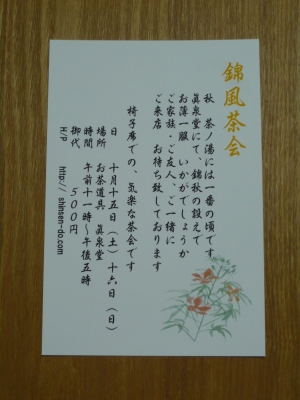 錦風茶会
秋 茶ノ湯には一番の頃です
眞泉堂にて、錦秋の設えで
お薄一服 いかがでしょうか
ご家族・ご友人、ご一緒に
ご来店 お待ち致しております
椅子席での、気楽な茶会です
日 十月十五日（土）十六日（日）
場所 お茶道具 眞泉堂
時間 午前十一時～午後五時
御代 500円
H/P http://shinsen-do.com